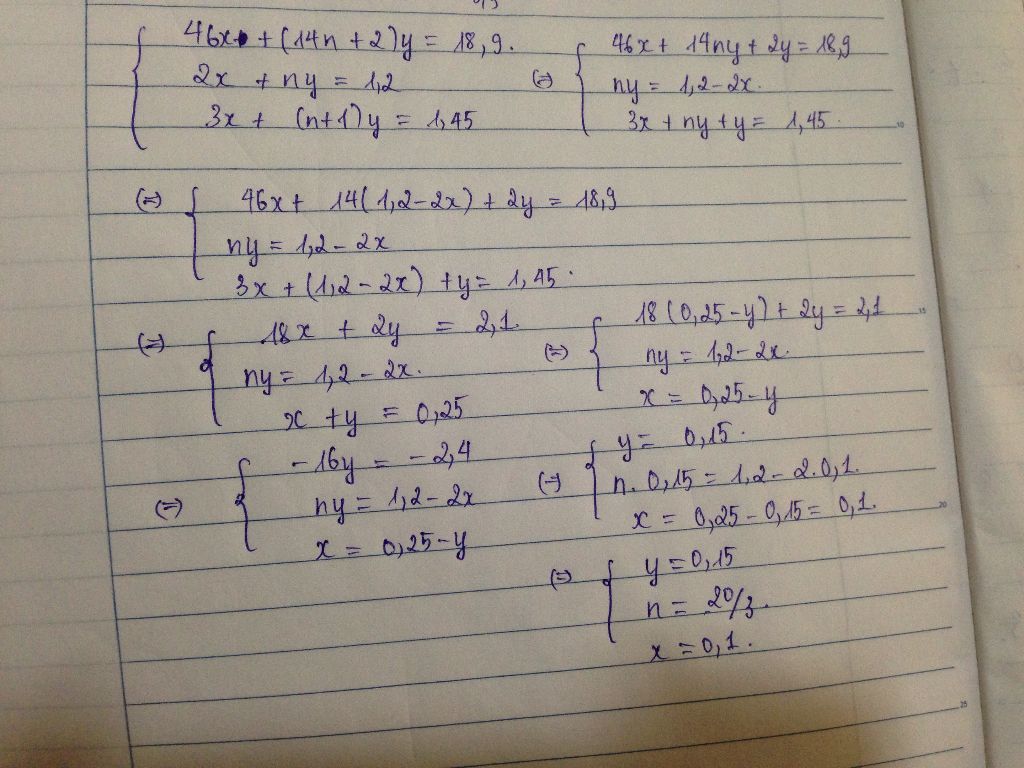 46x + (14n + 2)y = 18,9.
2x + ny = 1,2
3x + (n+1)y = 1,45
(=) 46x + 14ny + 2y = 18,9
ny = 1,2 - 2x.
3x + ny + y = 1,45.
(=) 46x + 14(1,2 - 2x) + 2y = 18,9
ny = 1,2 - 2x
3x + (1,2 - 2x) + y = 1,45.
(=) 18x + 2y = 2,1.
ny = 1,2 - 2x.
x + y = 0,25
(=) 18(0,25 - y) + 2y = 2,1
ny = 1,2 - 2x.
x = 0,25 - y
(=) -16y = -2,4
ny = 1,2 - 2x
x = 0,25 - y
(=) y = 0,15.
n. 0,15 = 1,2 - 2.0,1.
x = 0,25 - 0,15 = 0,1.
(=) y = 0,15
n = 20/3.
x = 0,1.
10
15
20
25